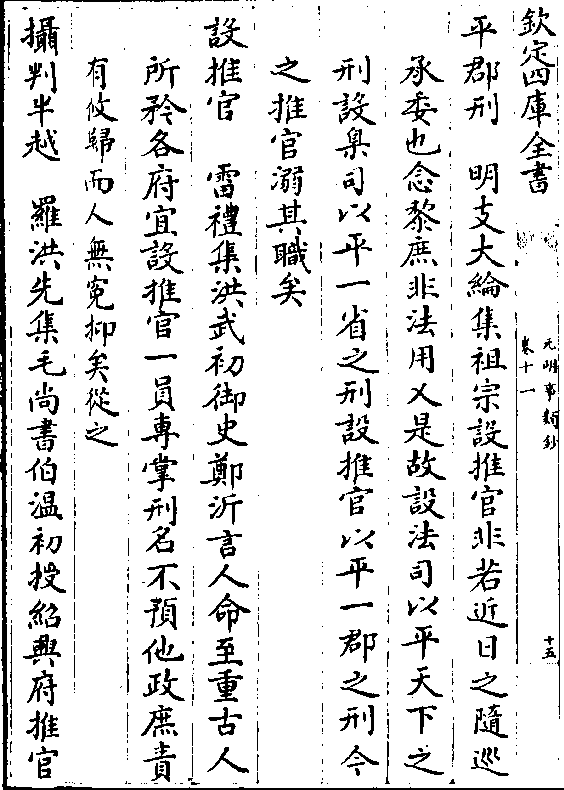 欽定四庫全書
元明事類鈔
卷十一
十五
平郡刑　明支大綸集祖宗設推官非若近日之隨巡
承委也念黎庶非法用乂是故設法司以平天下之
刑設臬司以平一省之刑設推官以平一郡之刑今
之推官溺其職矣
設推官　雷禮集洪武初御史鄭沂言人命至重古人
所矜各府宜設推官一員專掌刑名不預他政庶責
有攸歸而人無寃抑矣從之
攝判半越　羅洪先集毛尚書伯溫初授紹興府推官